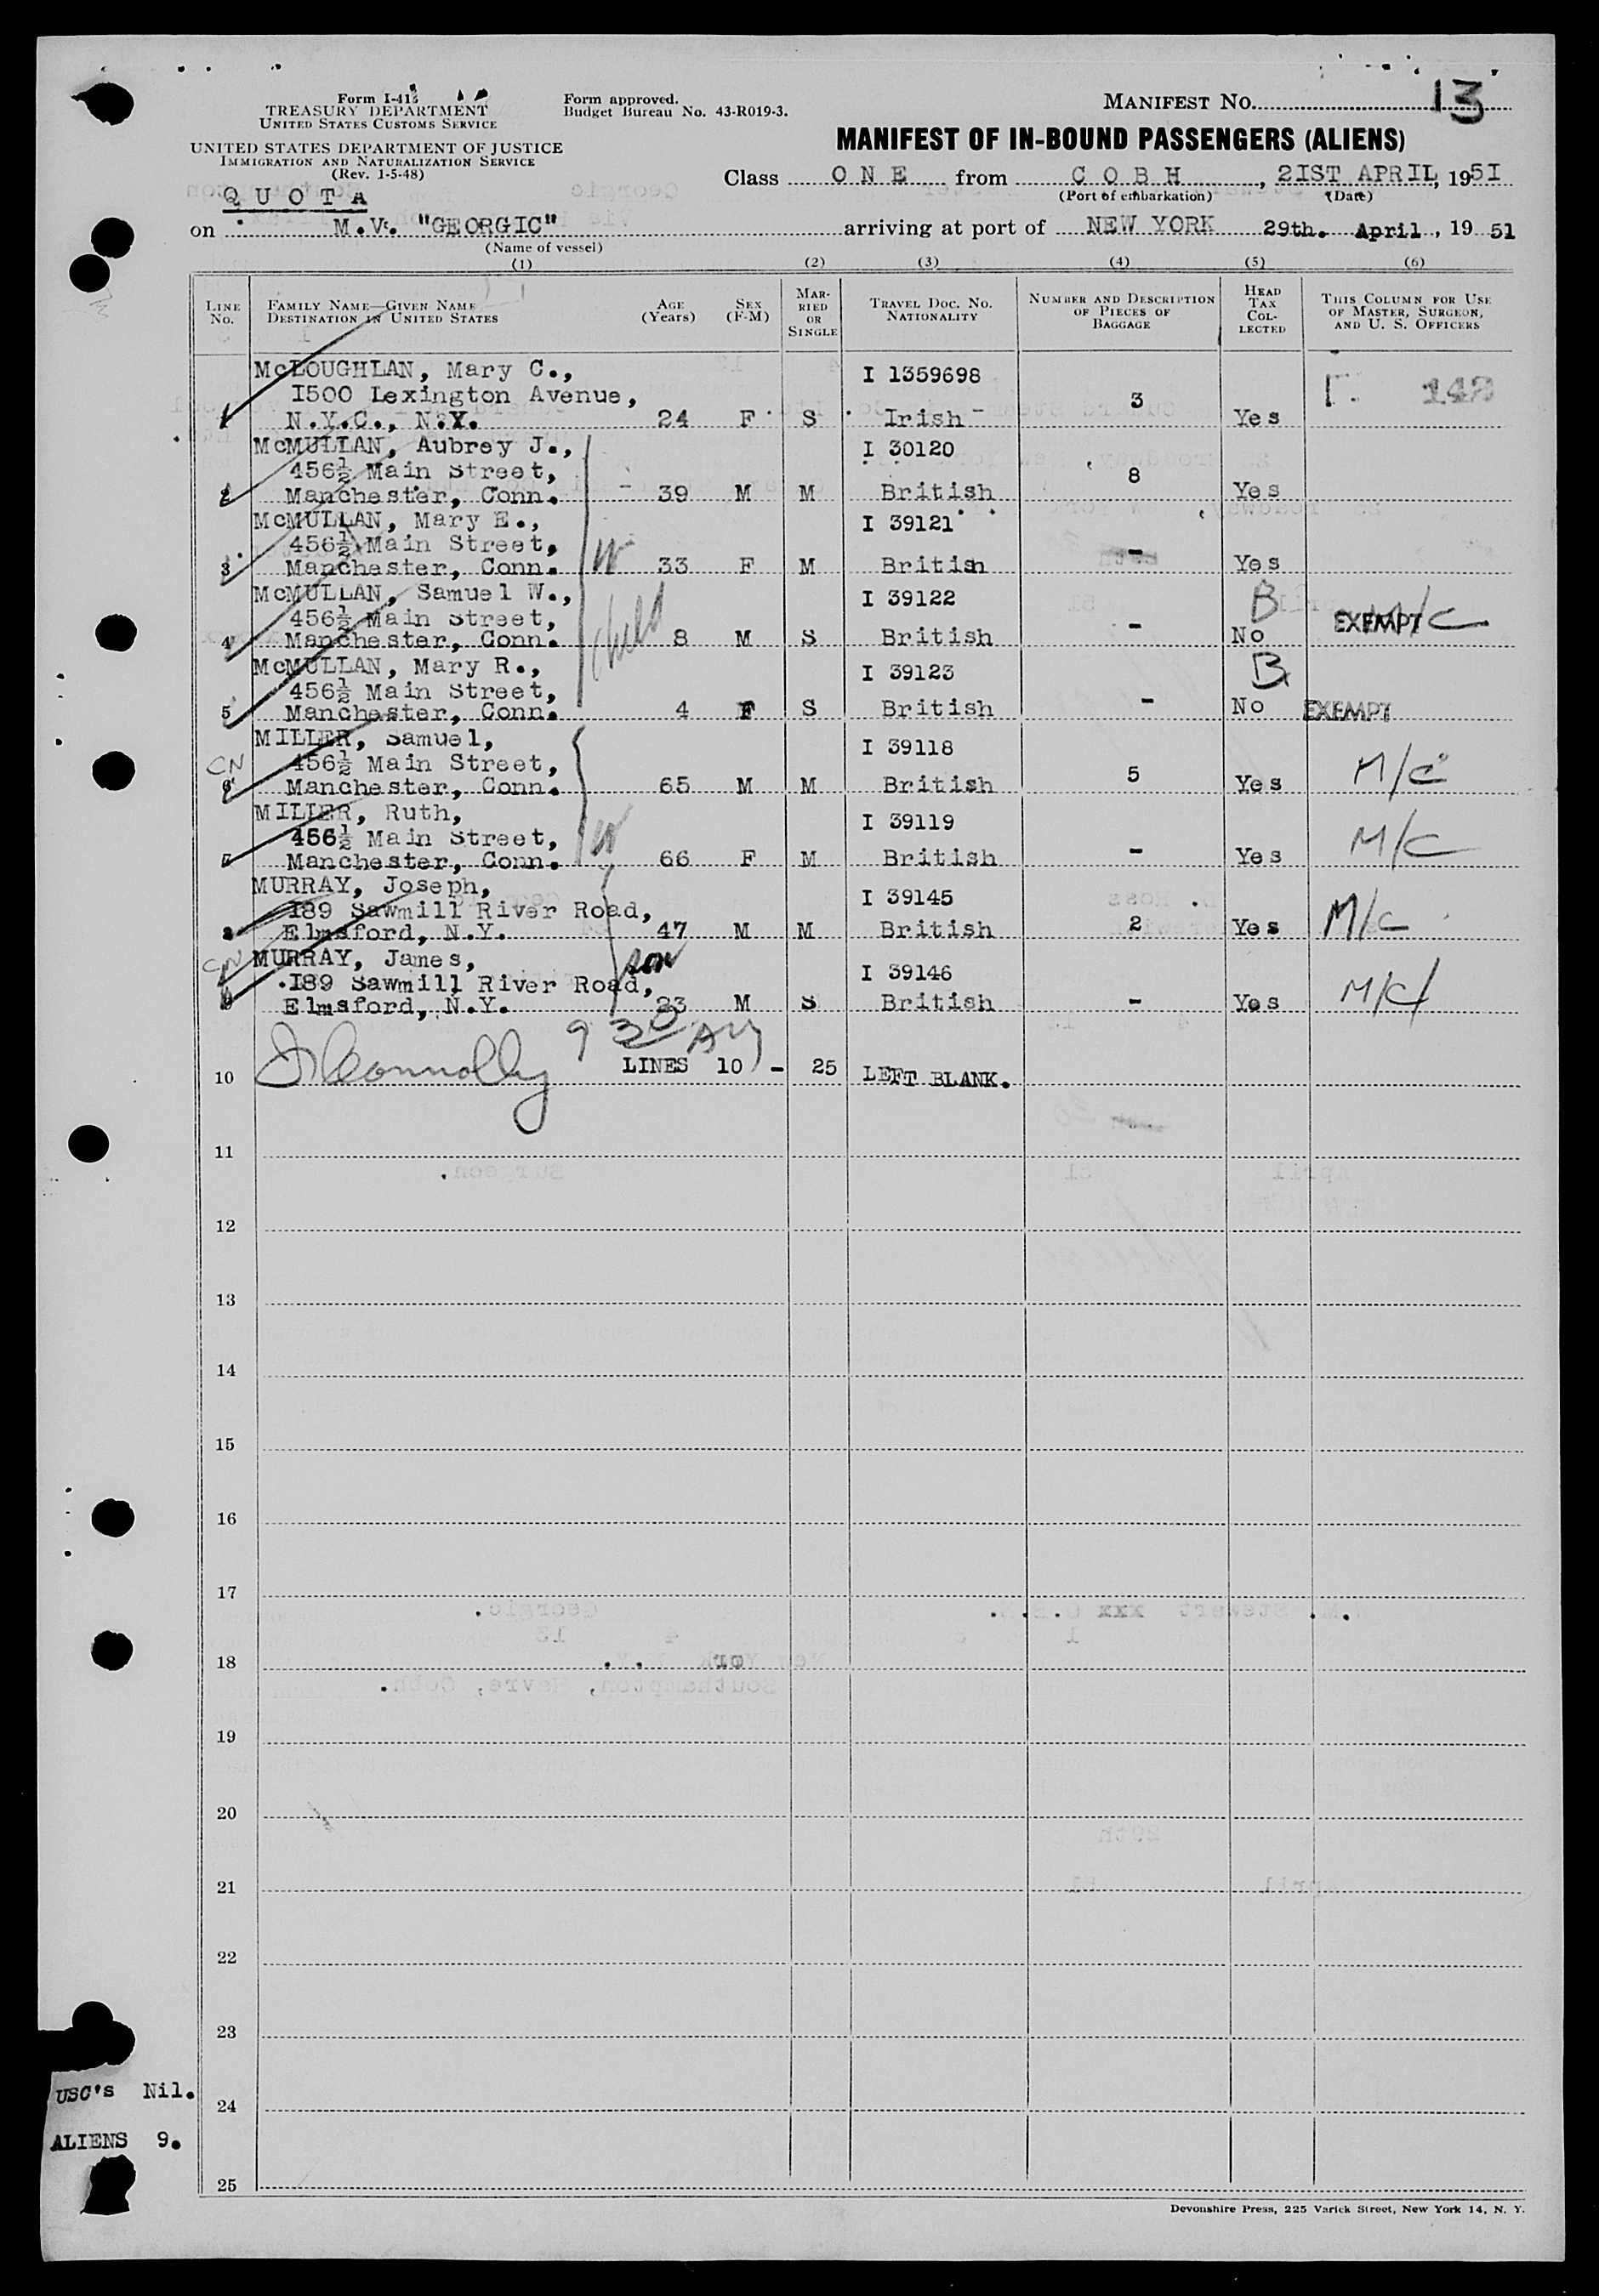 Form I-418
TREASURY DEPARTMENT
UNITED STATES CUSTOMS SERVICE
UNITED STATES DEPARTMENT OF JUSTICE
IMMIGRATION AND NATURALIZATION SERVICE
(Rev. 1-5-48)
Form approved.
Budget Bureau No. 43-R019-3.
MANIFEST NO. 13
MANIFEST OF IN-BOUND PASSENGERS (ALIENS)
Class ONE from COBH, 21ST APRIL, 1951
(Port of embarkation) (Date)
QUOTA
on M.V. "GEORGIC" arriving at port of NEW YORK 29th. April, 19 51
(Name of vessel)
(1) (2) (3) (4) (5) (6)
LINE No.
FAMILY NAME—GIVEN NAME
DESTINATION IN UNITED STATES
AGE (Years)
SEX (F-M)
MARRIED OR SINGLE
TRAVEL DOC. NO.
NATIONALITY
NUMBER AND DESCRIPTION OF PIECES OF BAGGAGE
HEAD TAX COLLECTED
THIS COLUMN FOR USE OF MASTER, SURGEON, AND U. S. OFFICERS
McLOUGHLAN, Mary C., I 1359698
1500 Lexington Avenue, 3
1 N.Y.C., N.Y. 24 F S Irish Yes
McMULLAN, Aubrey J., I 30120
456½ Main Street, 8
2 Manchester, Conn. 39 M M British Yes
McMULLAN, Mary E., I 39121
456½ Main Street, W -
3 Manchester, Conn. 33 F M British Yes
McMULLAN, Samuel W., I 39122 B
456½ Main Street, child - EXEMPT M/C
4 Manchester, Conn. 8 M S British No
McMULLAN, Mary R., I 39123 B
456½ Main Street, -
5 Manchester, Conn. 4 F S British No EXEMPT
MILLER, Samuel, I 39118
CN 456½ Main Street, 5 M/C
6 Manchester, Conn. 65 M M British Yes
MILLER, Ruth, I 39119
456½ Main Street, W - M/C
7 Manchester, Conn. 66 F M British Yes
MURRAY, Joseph, I 39145
189 Sawmill River Road,
8 Elmsford, N.Y. 47 M M British 2 Yes M/C
CN MURRAY, James, son I 39146
189 Sawmill River Road, M/C
9 Elmsford, N.Y. 23 M S British - Yes
9 30 AM
10 Connolly LINES 10 - 25 LEFT BLANK.
11
12
13
14
15
16
17
18
19
20
21
22
23
24
25
USC's Nil.
ALIENS 9.
Devonshire Press, 225 Varick Street, New York 14, N. Y.